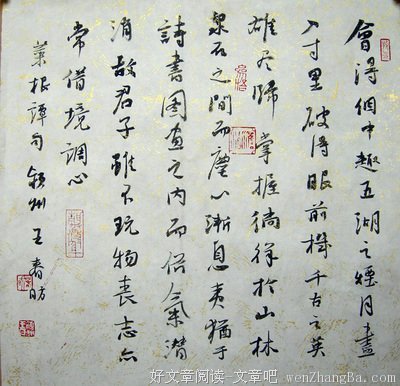 會得個中趣五湖之煙月盡
入寸里破得眼前機千古之英
雄尽歸掌握徜徉於山林
泉石之間而塵心漸息夷猶于
詩書圖画之内而俗氣潛
消故君子雖不玩物喪志亦
常借境調心
菜根譚句 州 王春
好文章阅读-文章吧-wenZhangBa.Com